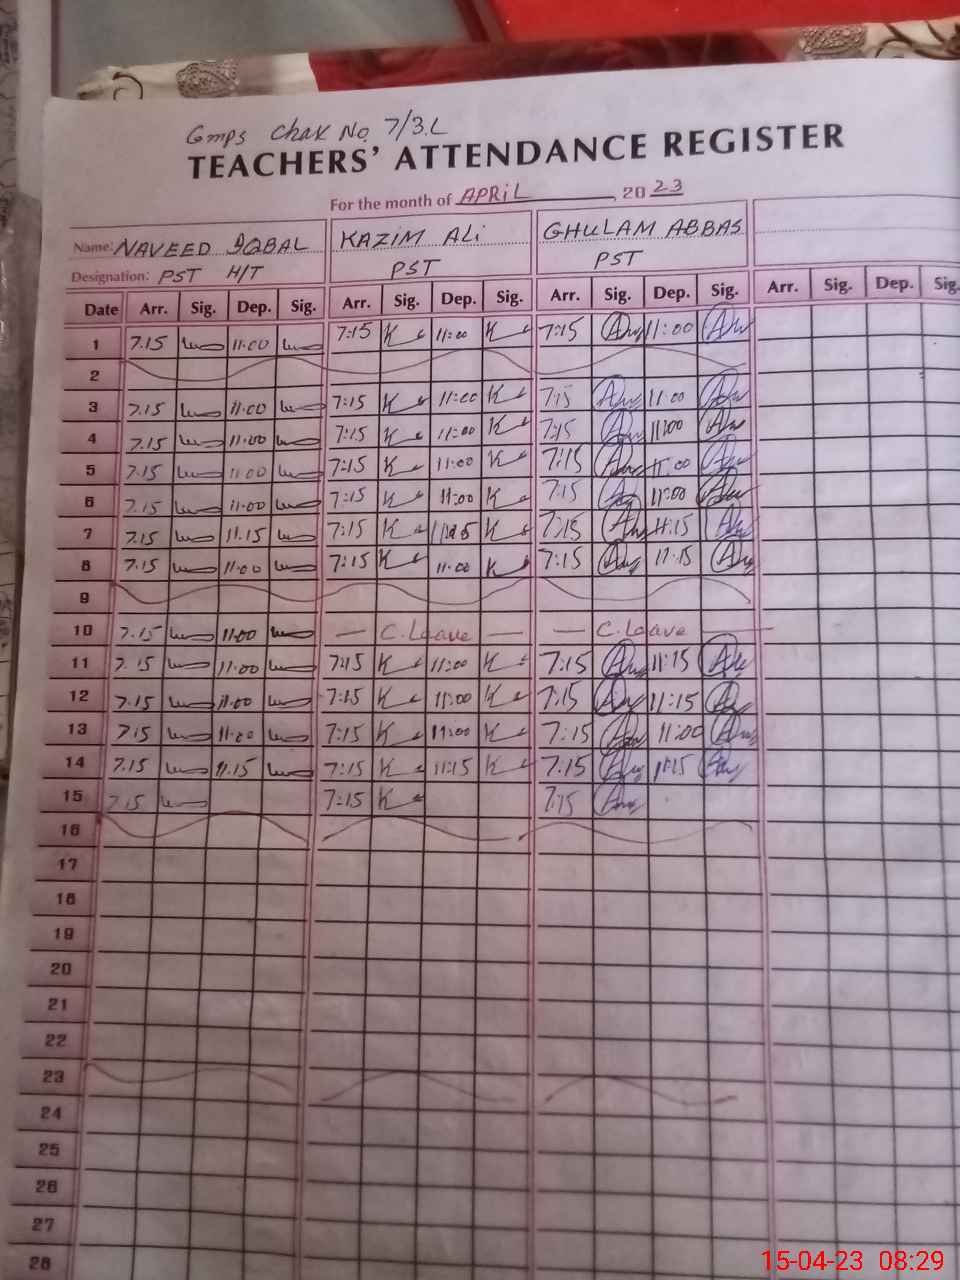 Gmps Chak No. 7/3.L
TEACHERS' ATTENDANCE REGISTER
For the month of APRIL, 2023
Name: NAVEED IQBAL KAZIM ALi GHULAM ABBAS
Designation: PST H/T PST PST
Date Arr. Sig. Dep. Sig. Arr. Sig. Dep. Sig. Arr. Sig. Dep. Sig. Arr. Sig. Dep. Sig.
1 7.15 11.00 7:15 11:00 7:15 11:00
2
3 7.15 11.00 7:15 11:00 7:15 11:00
4 7.15 11.00 7:15 11:00 7:15 11:00
5 7.15 11.00 7:15 11:00 7:15 11:00
6 7.15 11.00 7:15 11:00 7:15 11:00
7 7.15 11.15 7:15 7:15 11:15
8 7.15 11.00 7:15 11:00 7:15 11:15
9
10 7.15 11.00 — C. Leave — — C. Leave —
11 7.15 11.00 7:15 11:00 7:15 11:15
12 7.15 11.00 7:15 11:00 7:15 11:15
13 7.15 11.00 7:15 11:00 7:15 11:00
14 7.15 11.15 7:15 11:15 7:15 11:15
15 7.15 7:15 7:15
16
17
18
19
20
21
22
23
24
25
26
27
28
15-04-23 08:29